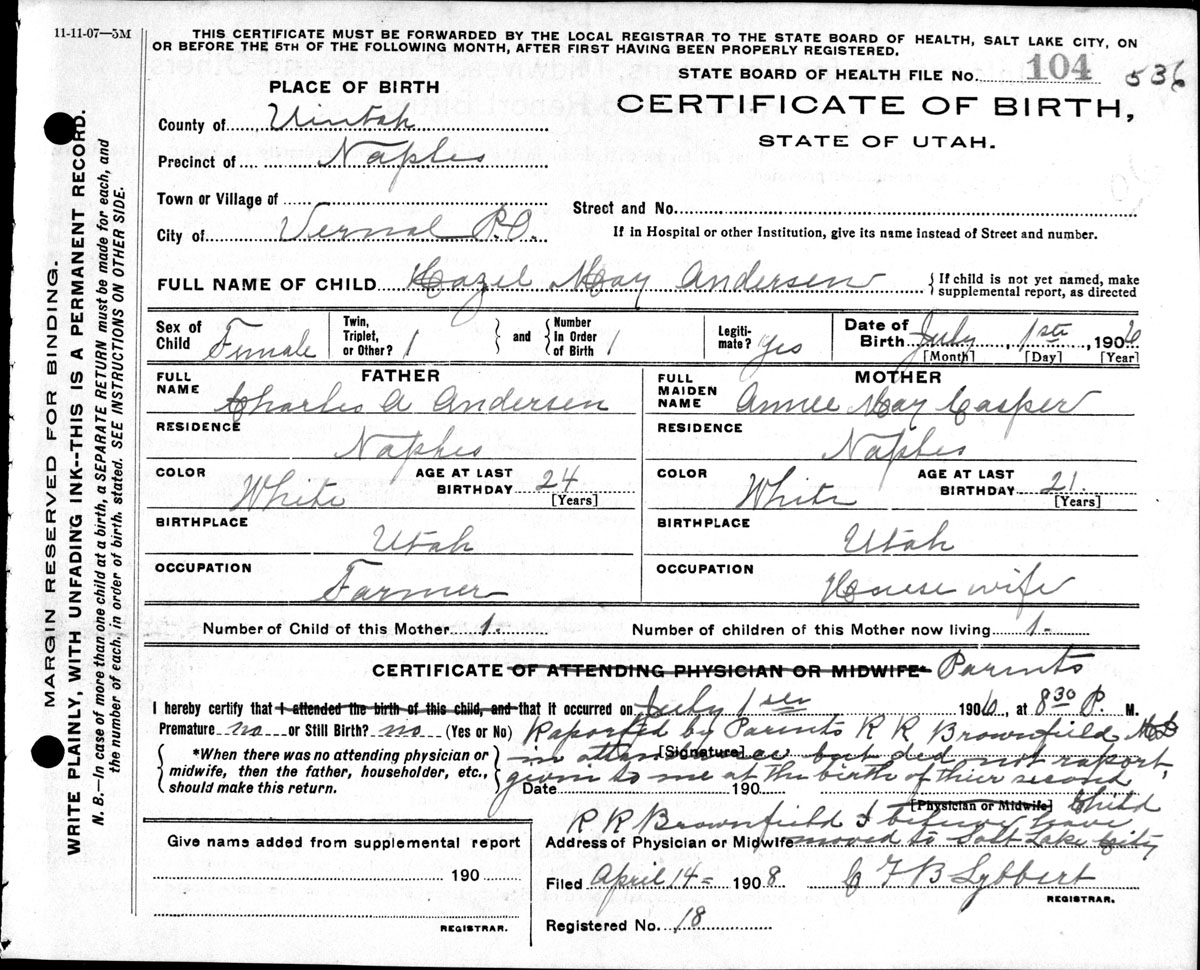 11-11-07—5M
THIS CERTIFICATE MUST BE FORWARDED BY THE LOCAL REGISTRAR TO THE STATE BOARD OF HEALTH, SALT LAKE CITY, ON
OR BEFORE THE 5TH OF THE FOLLOWING MONTH, AFTER FIRST HAVING BEEN PROPERLY REGISTERED.
STATE BOARD OF HEALTH FILE No. 104 536
PLACE OF BIRTH
CERTIFICATE OF BIRTH,
STATE OF UTAH.
County of Uintah
Precinct of Naples
Town or Village of
Street and No.
City of Vernal P.O.
If in Hospital or other Institution, give its name instead of Street and number.
FULL NAME OF CHILD Hazel May Andersen { If child is not yet named, make
supplemental report, as directed
Sex of Child Female Twin, Triplet, or Other? 1 } and { Number In Order of Birth 1 Legiti-mate? yes Date of Birth July 1st, 1906
[Month] [Day] [Year]
FATHER
FULL NAME Charles A Andersen
RESIDENCE
Naples
COLOR White AGE AT LAST BIRTHDAY 24 [Years]
BIRTHPLACE
Utah
OCCUPATION
Farmer
MOTHER
FULL MAIDEN NAME Annee May Casper
RESIDENCE
Naples
COLOR White AGE AT LAST BIRTHDAY 21. [Years]
BIRTHPLACE
Utah
OCCUPATION
House wife
Number of Child of this Mother 1.
Number of children of this Mother now living 1.
CERTIFICATE OF ATTENDING PHYSICIAN OR MIDWIFE* Parints
I hereby certify that I attended the birth of this child, and that it occurred on July 1st 1906, at 8 30 P. M.
Premature no or Still Birth? no (Yes or No)
*When there was no attending physician or
midwife, then the father, householder, etc.,
should make this return.
Raported by Parints R R Brownfield MD
[Signature]
in attendance but did not raport,
given to me at the birth of thier second
Date 190
[Physician or Midwife] Child
R R Brownfield I believe have
Address of Physician or Midwife moved to Salt Lake City
Give name added from supplemental report
190
REGISTRAR.
Filed April 14 1908 C F B Lybbert
REGISTRAR.
Registered No. 18
MARGIN RESERVED FOR BINDING.
WRITE PLAINLY, WITH UNFADING INK--THIS IS A PERMANENT RECORD.
N. B.—In case of more than one child at a birth, a SEPARATE RETURN must be made for each, and
the number of each, in order of birth, stated. SEE INSTRUCTIONS ON OTHER SIDE.